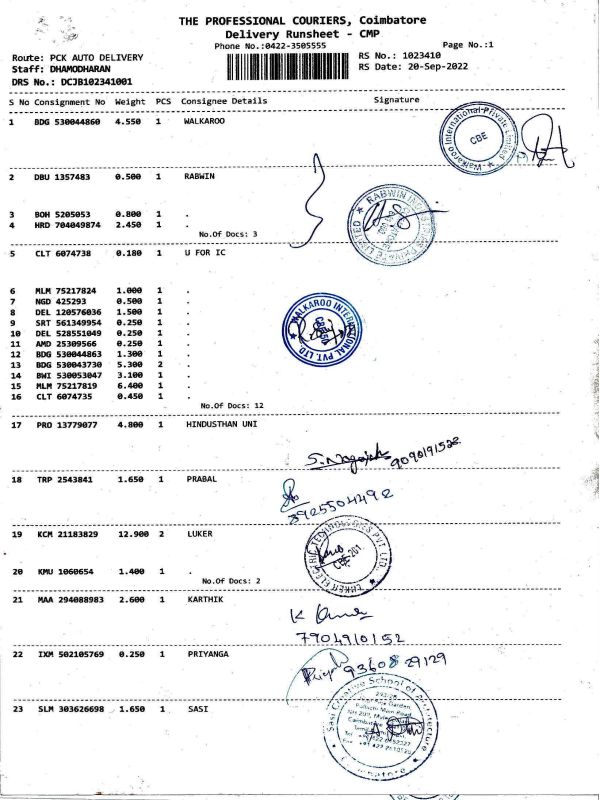 THE PROFESSIONAL COURIERS, Coimbatore
Delivery Runsheet - CMP
Phone No.:0422-3505555 Page No.:1
Route: PCK AUTO DELIVERY RS No.: 1023410
Staff: DHAMODHARAN RS Date: 20-Sep-2022
DRS No.: DCJB102341001
S No Consignment No Weight PCS Consignee Details Signature
1 BDG 530044860 4.550 1 WALKAROO
Walkaroo International Private Limited
CBE
2 DBU 1357483 0.500 1 RABWIN
RABWIN INDUSTRIES PRIVATE LIMITED
3 BOH 5205053 0.800 1 .
4 HRD 704049874 2.450 1 .
No.Of Docs: 3
5 CLT 6074738 0.180 1 U FOR IC
6 MLM 75217824 1.000 1 .
7 NGD 425293 0.500 1 .
8 DEL 120576036 1.500 1 .
9 SRT 561349954 0.250 1 .
10 DEL 528551049 0.250 1 .
11 AMD 25309566 0.250 1 .
12 BDG 530044863 1.300 1 .
13 BDG 530043730 5.300 2 .
14 BWI 530053047 3.100 1 .
15 MLM 75217819 6.400 1 .
16 CLT 6074735 0.450 1 .
WALKAROO INTERNATIONAL PVT. LTD.
No.Of Docs: 12
17 PRO 13779077 4.800 1 HINDUSTHAN UNI
9090191528
18 TRP 2543841 1.650 1 PRABAL
8925504492
19 KCM 21183829 12.900 2 LUKER
LUKER ELECTRIC TECHNOLOGIES PVT. LTD.
20 KMU 1060654 1.400 1 .
No.Of Docs: 2
21 MAA 294088983 2.600 1 KARTHIK
7904910152
22 IXM 502105769 0.250 1 PRIYANGA
93608 29129
23 SLM 303626698 1.650 1 SASI
Sasi Creative School of Architecture
Coimbatore